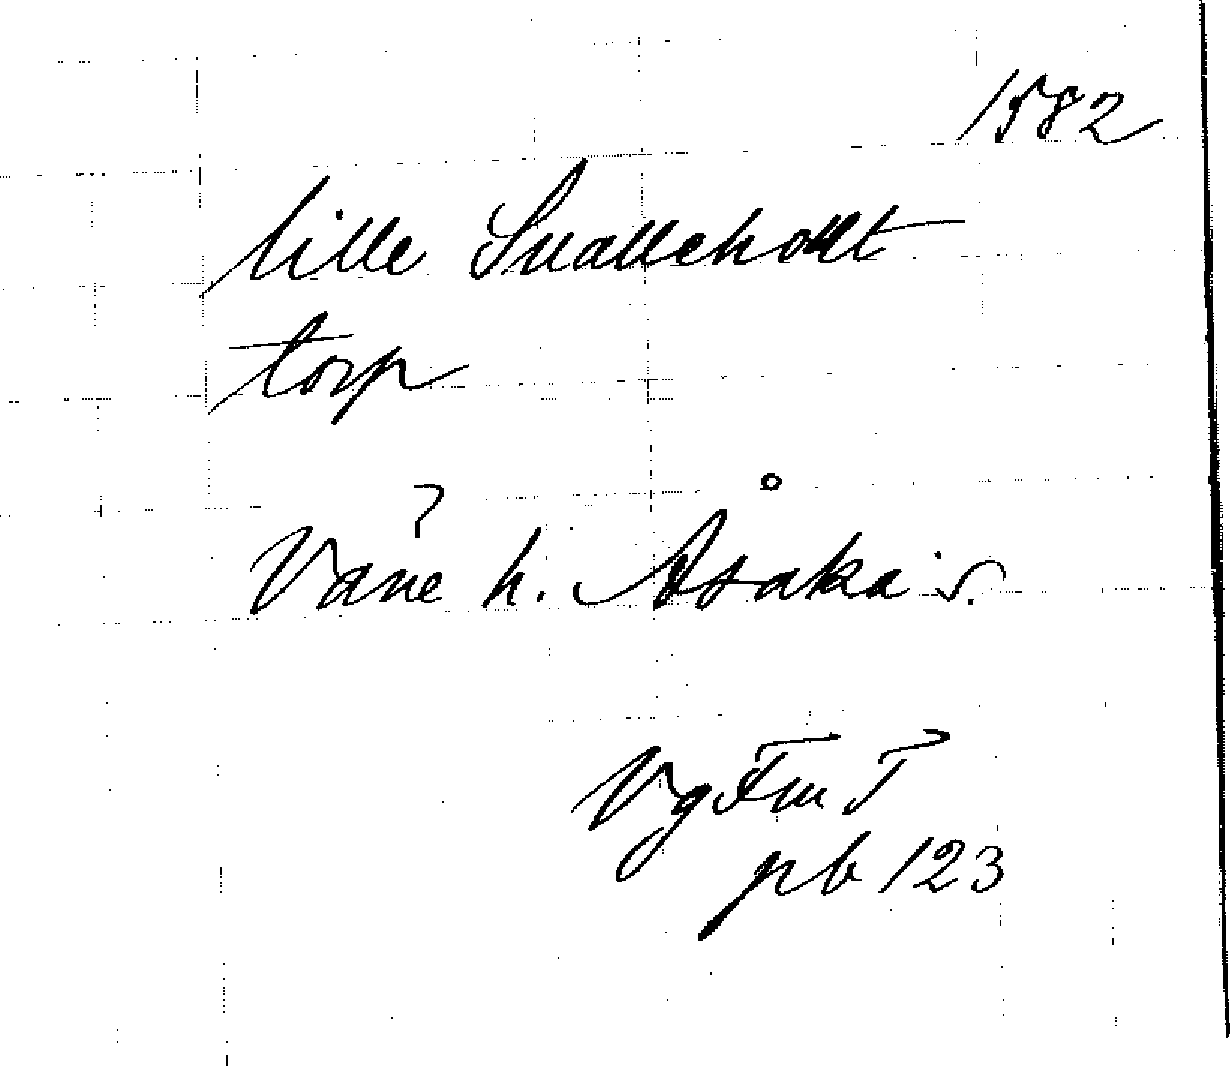 1582
lille Snalleholt
torp
?
Väne h. Åsaka s.
Vg Fm T
pb 123